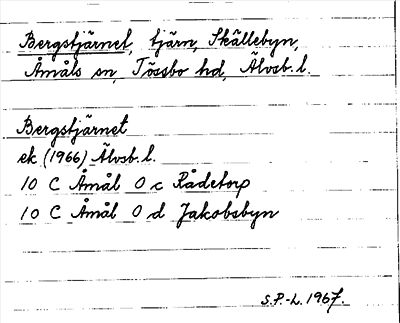 Bergstjärnet, tjärn, Skällebyn,
Åmåls sn, Tössbo hd, Älvsb. l.
Bergstjärnet
ek (1966) Älvsb. l.
10 C Åmål 0 c Rådetorp
10 C Åmål 0 d Jakobsbyn
S.P.-L. 1967.